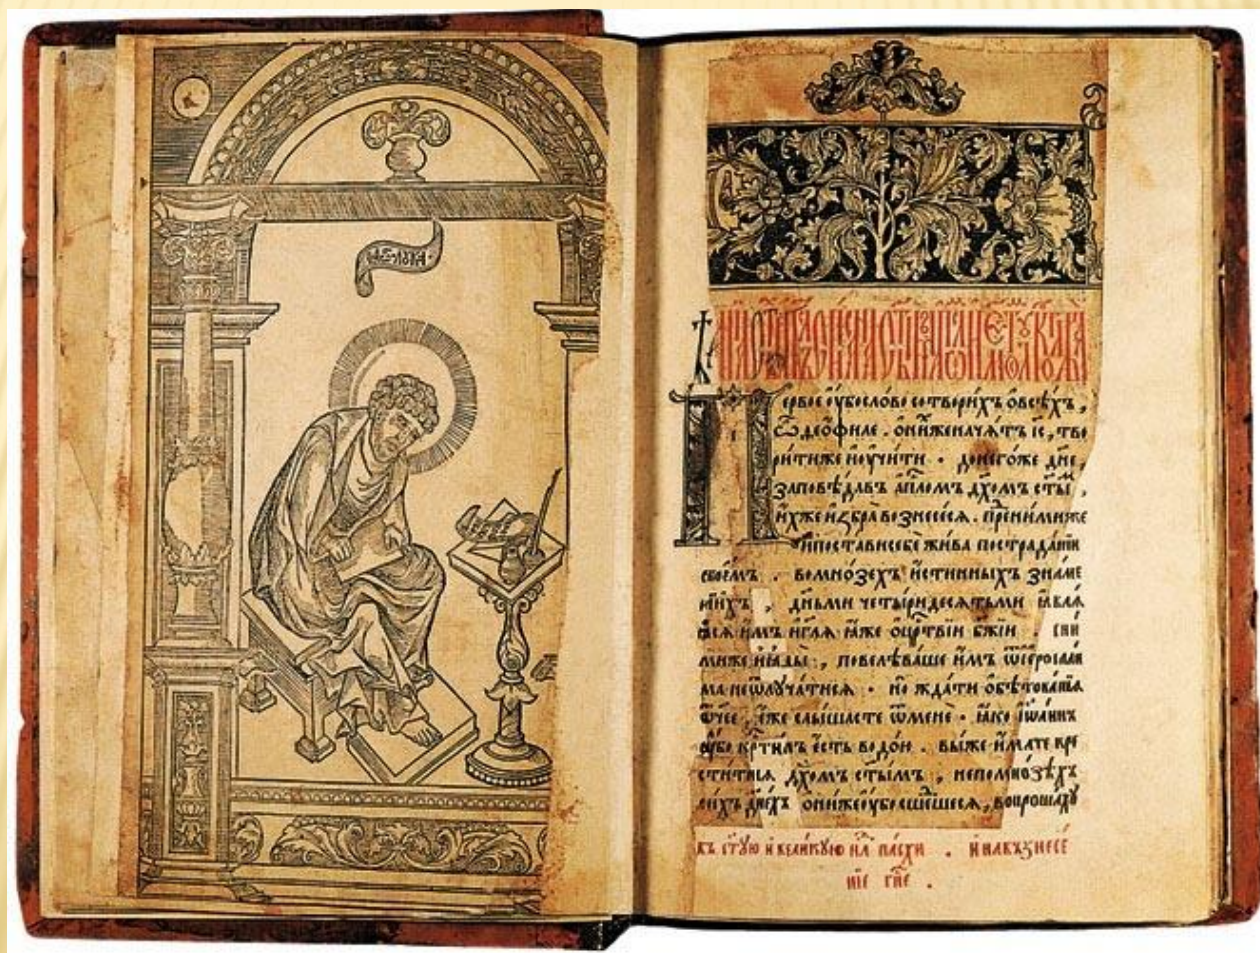 лука
Первое оу҆бо слово сотворихъ ѡ҆ всѣхъ,
ѽ деѻфиле. ѡ҆ ниже начатъ і҆с, тво
рити же и҆ оу҆чити. донегоже дн҃е,
заповѣдавъ а҆пⷭ҇лом дх҃омъ ст҃ыⷨ,
и҆хже и҆збра вознесеся. пред ними же
и҆ постави себе жива по страданїи
своемъ. во мнозѣхъ и҆стинныхъ знаме
нїихъ, дньми четыридесѧтьми ꙗ҆влѧ
ꙗсѧ и҆мъ и҆ гл҃ѧ ꙗ҆же о҆ црⷭ҇твїи бж҃їи. с ни
ми же и҆ ꙗ҆ды, повелѣваше и҆мъ ѿ і҆еросалⷨи
ма не ѿлучатисѧ. но ждати о҆бѣтованїѧ
ѿчее, е҆же слышасте ѿ мене. ꙗ҆ко і҆ѡаннъ
оу҆бо крⷭ҇тилъ е҆сть водою. вы же и҆мате кре
ститисѧ дх҃омъ ст҃ымъ, не по мнозѣхъ
сихъ дн҃ехъ ѡ҆ни же оу҆бо сшедшесѧ, вопрошахꙋ
въ ст҃ꙋю и҆ великꙋю нлⷧ҇ пасхи. и҆ на възнесе
нїе гнⷭ҇е.